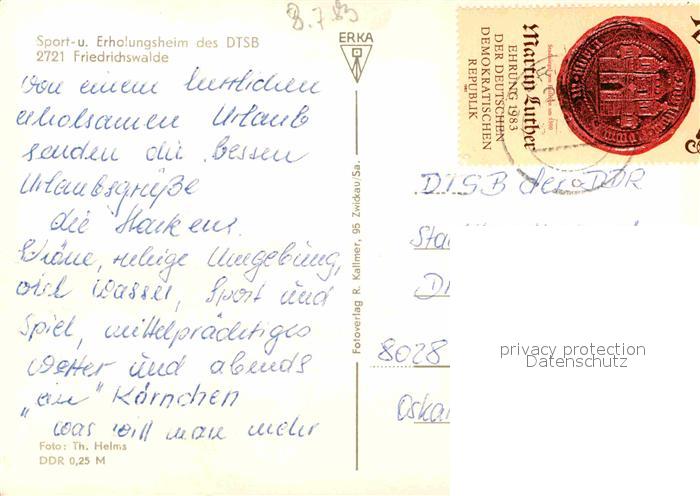 8.7.83
Sport- u. Erholungsheim des DTSB
2721 Friedrichswalde
ERKA
Von einem herrlichen
erholsamen Urlaub
senden die besten
Urlaubsgrüße
die Harkens.
Schöne, ruhige Umgebung,
viel Wasser, Sport und
Spiel, mittelprächtiges
Wetter und abends
„ein" Körnchen
was will man mehr
Foto: Th. Helms
DDR 0,25 M
Fotoverlag R. Kallmer, 95 Zwickau/Sa.
Martin Luther
EHRUNG 1983
DER DEUTSCHEN
DEMOKRATISCHEN
REPUBLIK
DTSB der DDR
8028
Oskar
privacy protection
Datenschutz